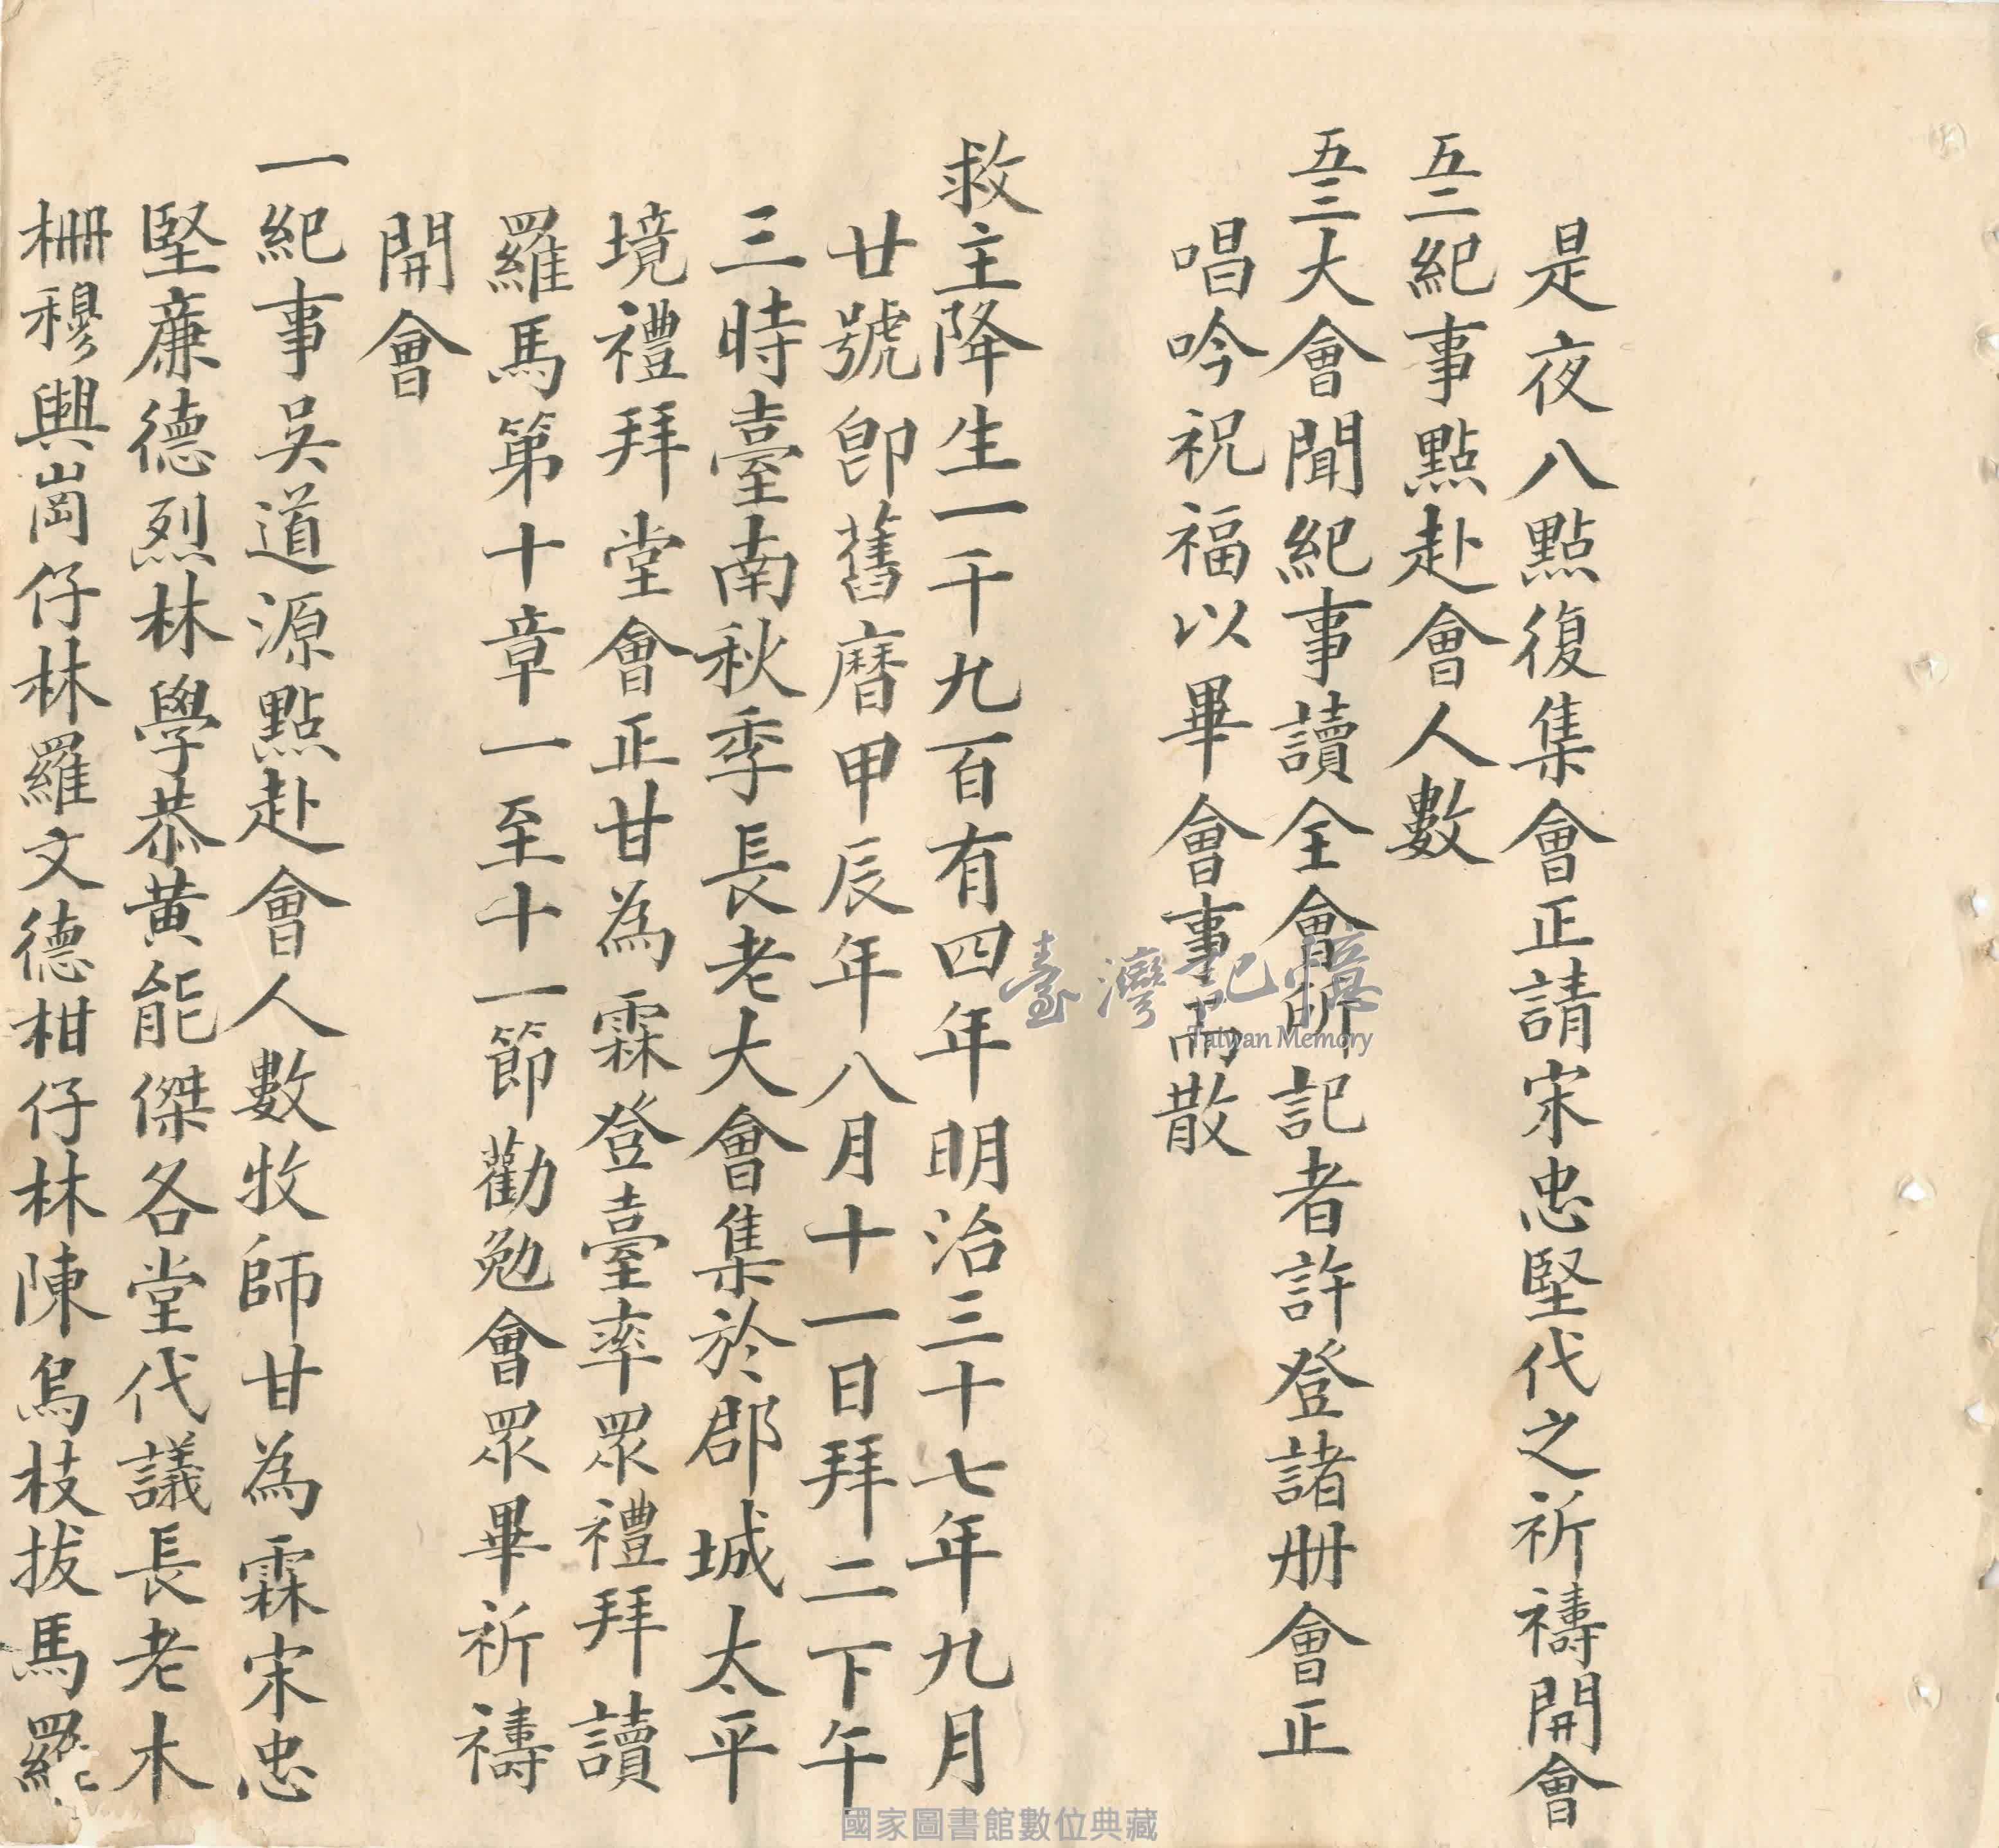 是夜八點復集會正請宋忠堅代之祈禱開會
五二紀事點赴會人數
五三大會聞紀事讀全會所記者許登諸册會正
唱吟祝福以畢會事而散
救主降生一千九百有四年明治三十七年九月
廿號卽舊曆甲辰年八月十一日拜二下午
三時臺南秋季長老大會集於郡城太平
境禮拜堂會正甘為霖登臺率眾禮拜讀
羅馬第十章一至十一節勸勉會眾畢祈禱
開會
一紀事吳道源點赴會人數牧師甘為霖宋忠
堅廉德烈林學恭黃能傑各堂代議長老木
柵穆興崗仔林羅文德柑仔林陳烏枝拔馬羅
臺灣記憶
Taiwan Memory
國家圖書館數位典藏